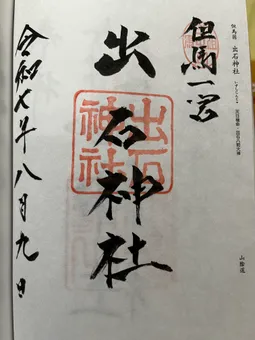 但馬國 出石神社
山陰道
但馬一宮
出石神社
出石
神社
令和七年八月九日